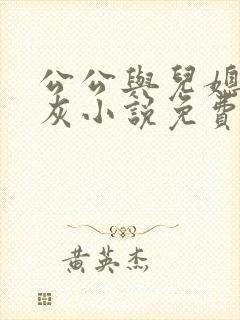 公公與兒媳
灰小說免費
黃英杰